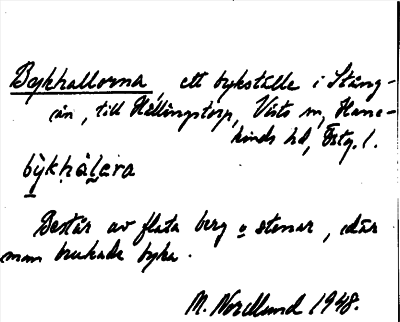 Bykhallorna, ett bykställe i Stång-
ån, till Hällingstorp, Vists sn, Hane-
kinds hd, Östg. l.
bȳkhàḷạra
Består av flata berg o stenar, där
man brukade byka.
M. Nordlund 1948.